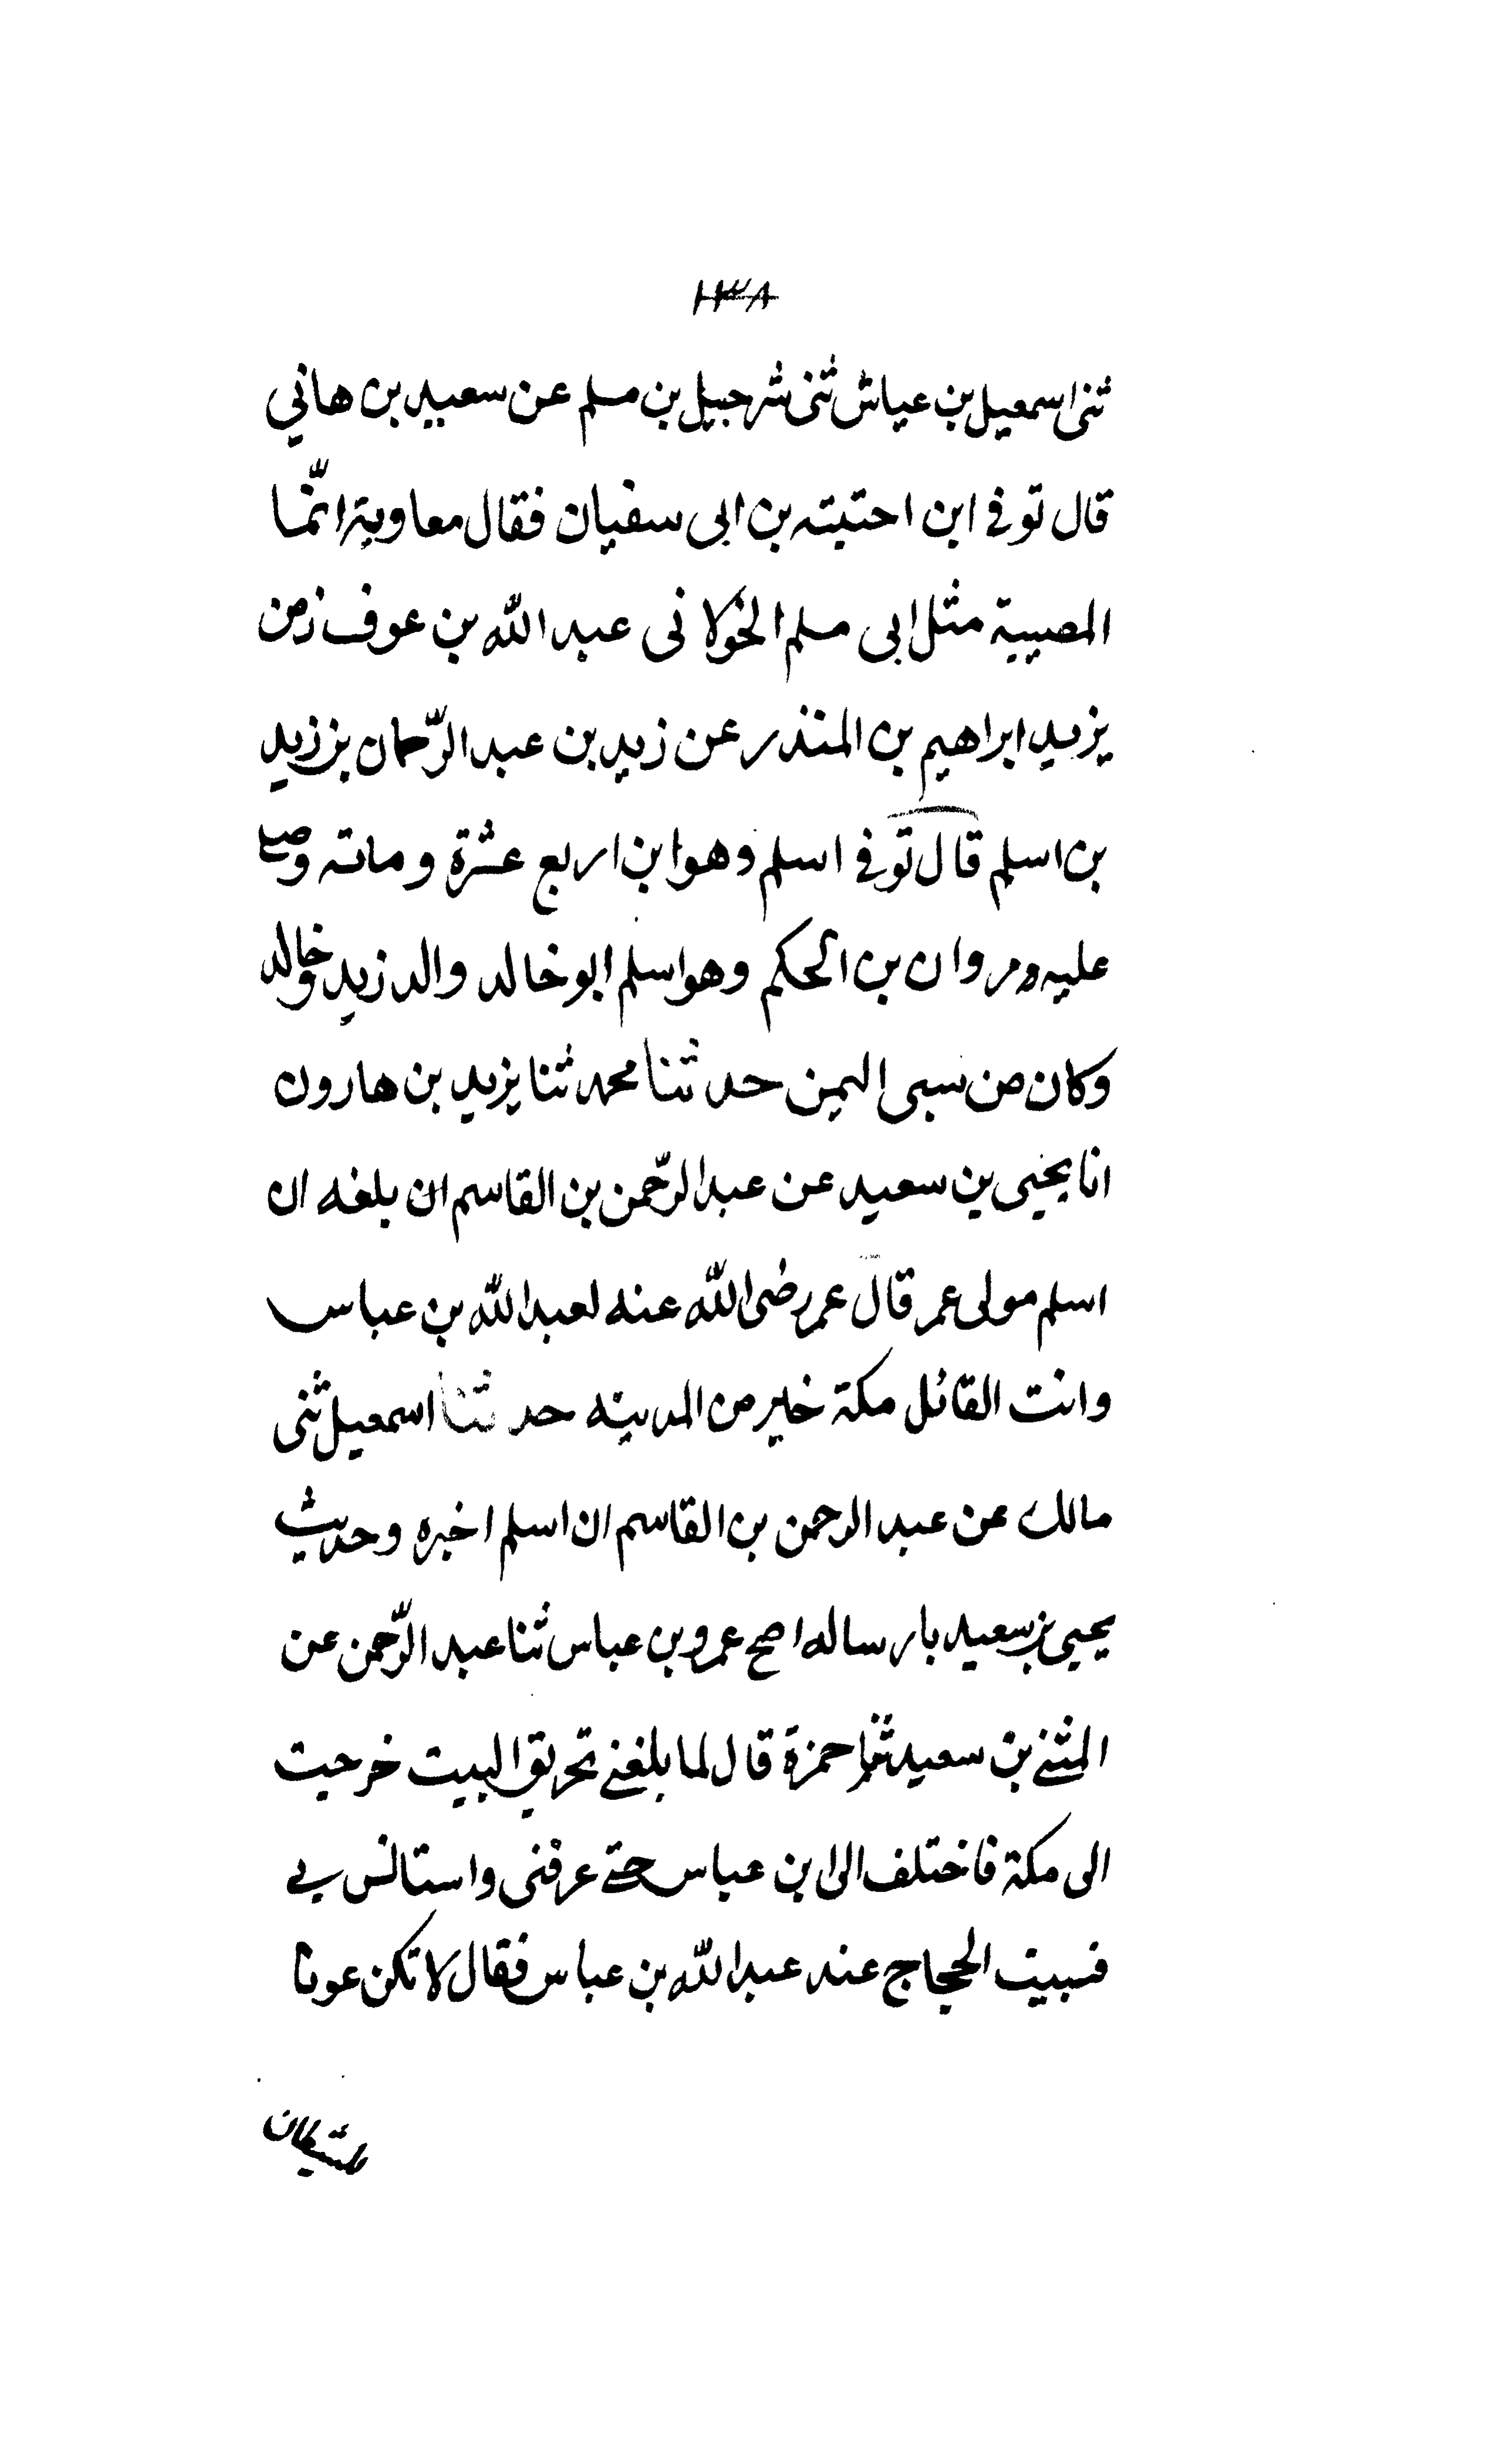 ١٣٨
ثنى اسمعيل بن عياش ثنى شرحبيل بن مسلم عن سعيد بن هاني
قال توفى ابن احتيته بن ابى سفيان فقال معاوية انّما
المصيبة مثل ابى مسلم الخولانى عبد الله بن عوف زمن
يزيد ابراهيم بن المنذر عن زيد بن عبد الرّحمان بن زيد
بن اسلم قال توفى اسلم وهو ابن اربع عشرة ومائه وصلى
عليه مروان بن الحكم وهو اسلم ابو خالد والد زيد وخالد
وكان من سبى اليمن حدثنا محمد ثنا يزيد بن هارون
انا يحيى بن سعيد عن عبد الرّحمن بن القاسم ان بلغه ان
اسلم مولى عمر قال عمر رضى الله عنه لعبد الله بن عباس
وانت القائل مكة خير من المدينه حدثنا اسمعيل ثنى
مالك عن عبد الرحمن بن القاسم ان اسلم اخبره وحديث
يحيى بن سعيد بارساله اصح عمرو بن عباس ثنا عبد الرّحمن عن
المثنى بن سعيد ثنا حمزة قال لما بلغنى تحريق البيت خرجت
الى مكة فاختلف الى ابن عباس حتى عرفنى واستانس بى
فسبيت الحجاج عند عبد الله بن عباس فقال لا تكن عونا